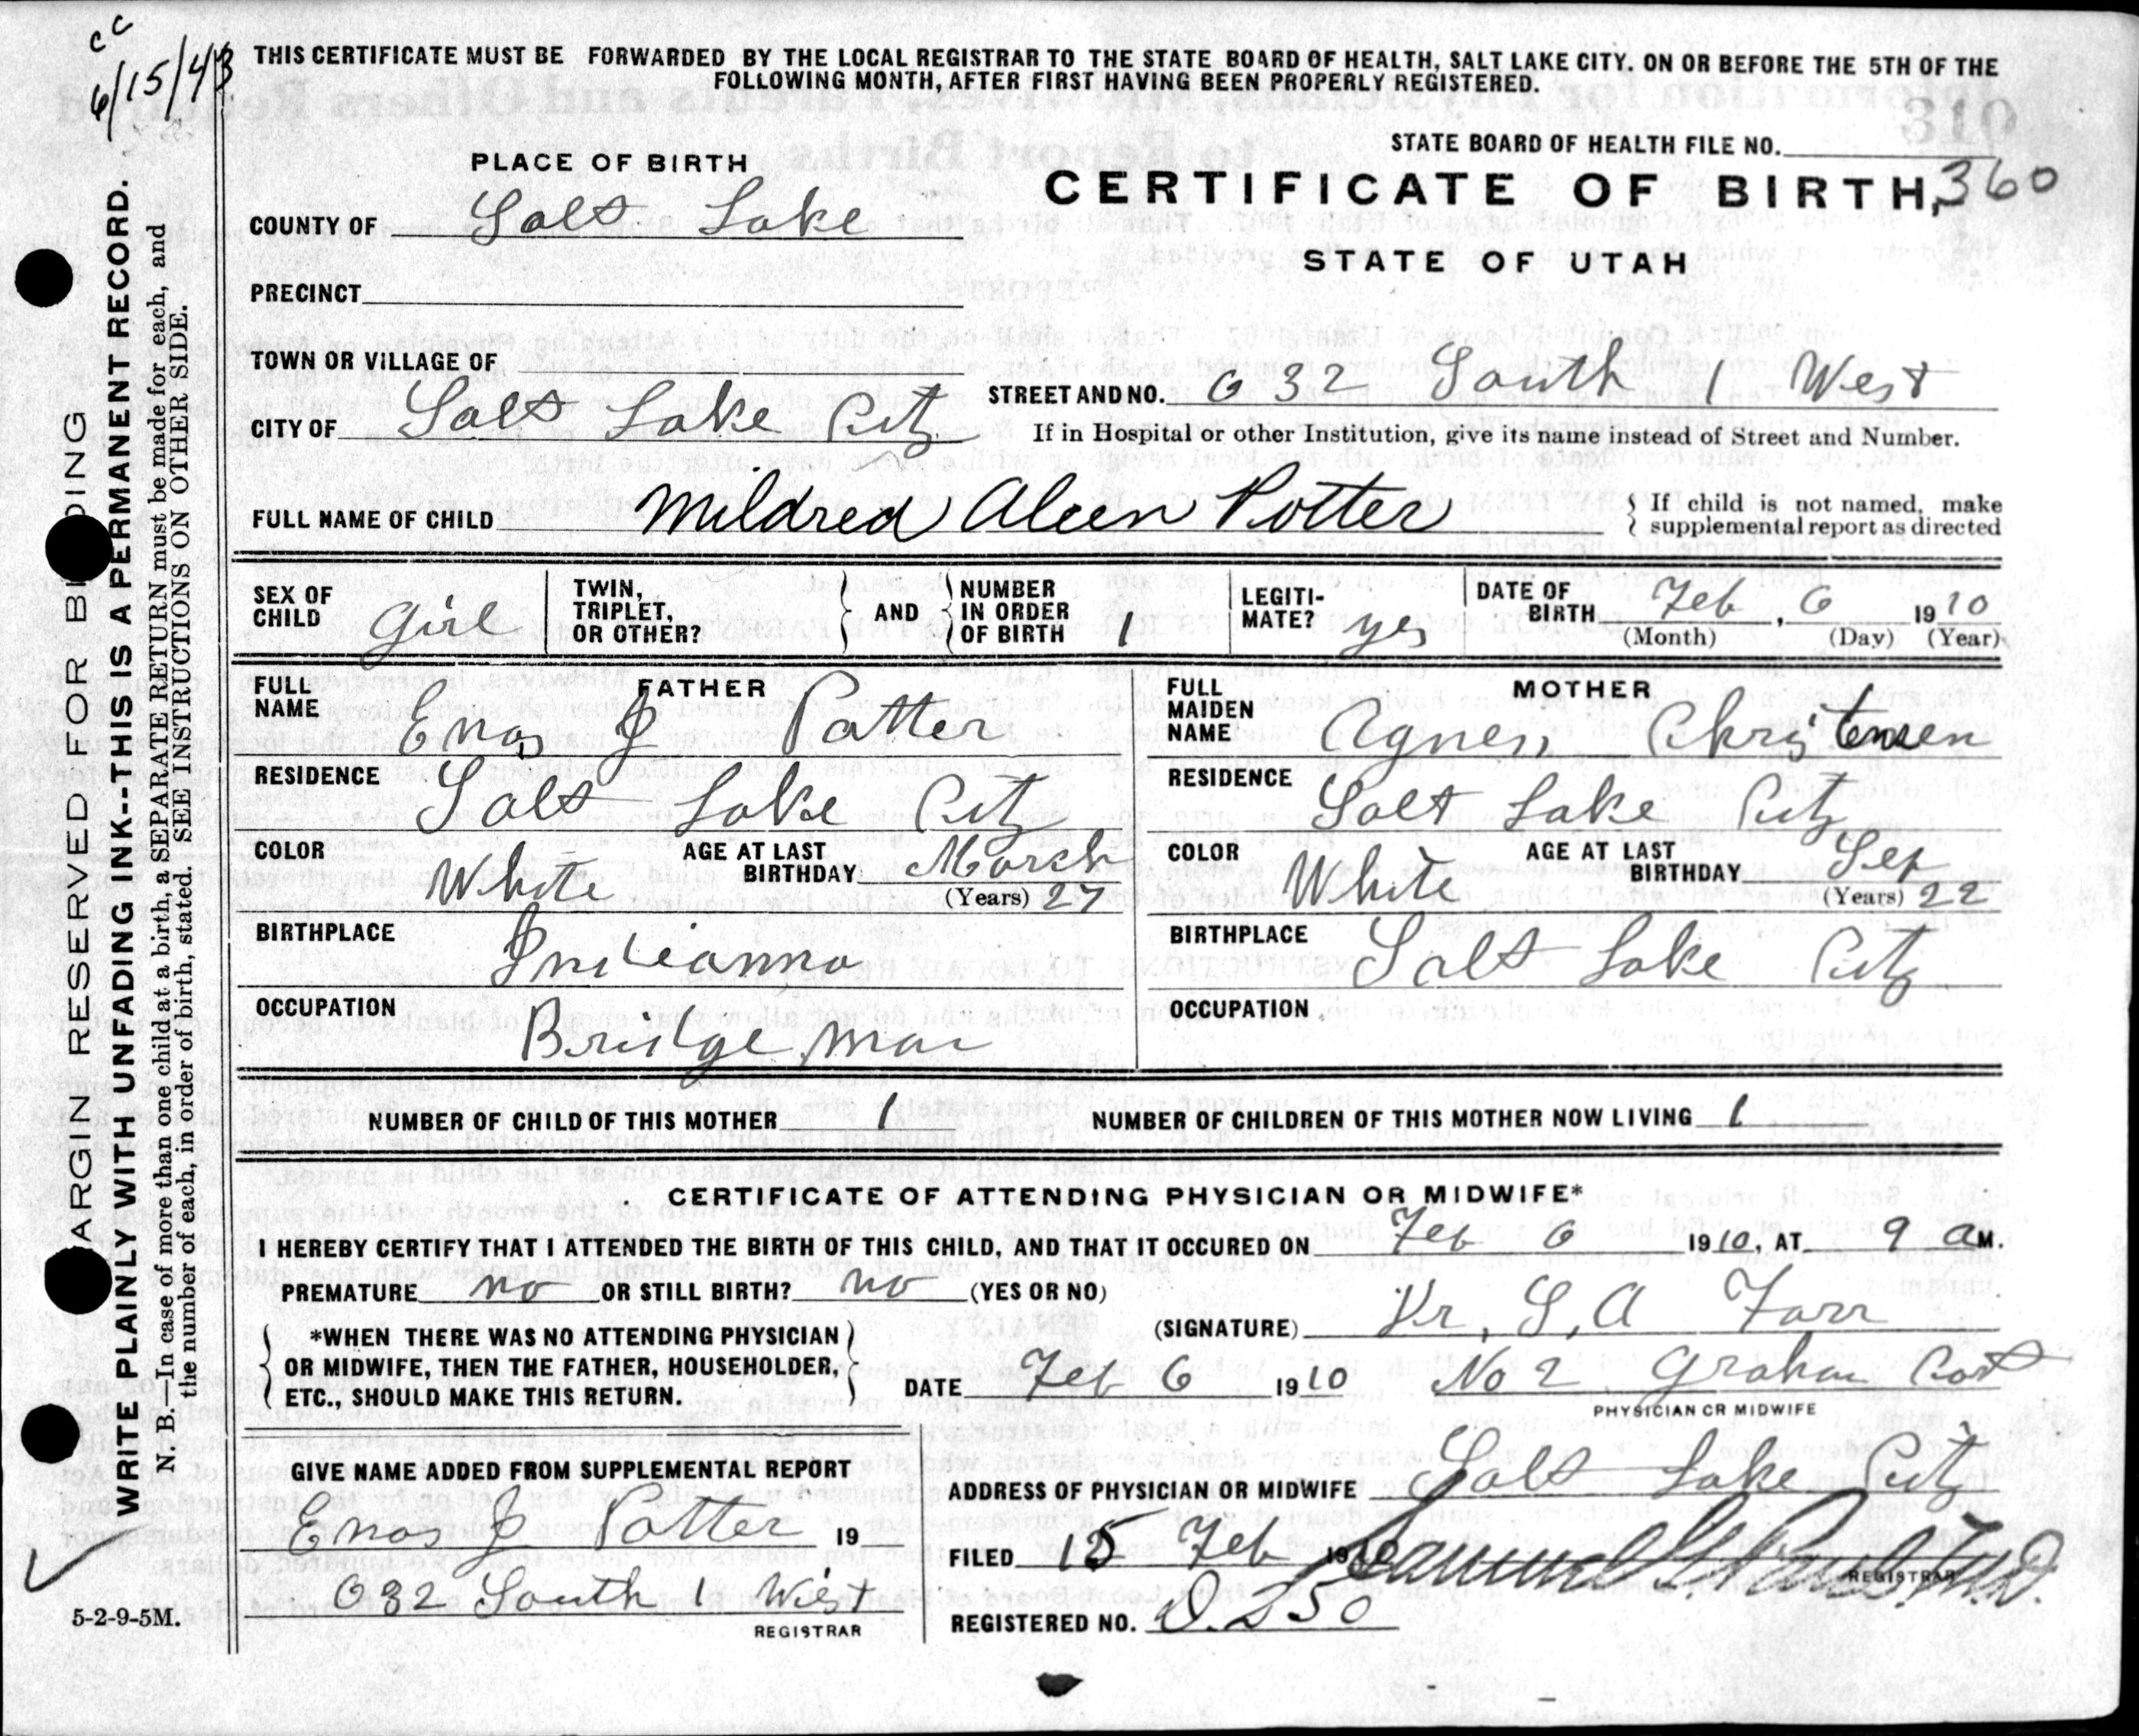 cc
6/15/43
THIS CERTIFICATE MUST BE FORWARDED BY THE LOCAL REGISTRAR TO THE STATE BOARD OF HEALTH, SALT LAKE CITY. ON OR BEFORE THE 5TH OF THE
FOLLOWING MONTH, AFTER FIRST HAVING BEEN PROPERLY REGISTERED.
310
STATE BOARD OF HEALTH FILE NO.
PLACE OF BIRTH
CERTIFICATE OF BIRTH, 360
STATE OF UTAH
COUNTY OF Salt Lake
PRECINCT
TOWN OR VILLAGE OF
STREET AND NO. 632 South 1 West
CITY OF Salt Lake City
If in Hospital or other Institution, give its name instead of Street and Number.
FULL NAME OF CHILD Mildred Aleen Potter
If child is not named, make
supplemental report as directed
SEX OF CHILD Girl
TWIN, TRIPLET, OR OTHER?
AND
NUMBER IN ORDER OF BIRTH 1
LEGITI-MATE? yes
DATE OF BIRTH Feb, 6 1910
(Month) (Day) (Year)
FATHER
FULL NAME Enos J Potter
RESIDENCE Salt Lake City
COLOR White
AGE AT LAST BIRTHDAY March
(Years) 27
BIRTHPLACE Indianna
OCCUPATION Bridge man
MOTHER
FULL MAIDEN NAME Agnes Christensen
RESIDENCE Salt Lake City
COLOR White
AGE AT LAST BIRTHDAY Sep
(Years) 22
BIRTHPLACE Salt Lake City
OCCUPATION
NUMBER OF CHILD OF THIS MOTHER 1
NUMBER OF CHILDREN OF THIS MOTHER NOW LIVING 1
CERTIFICATE OF ATTENDING PHYSICIAN OR MIDWIFE*
I HEREBY CERTIFY THAT I ATTENDED THE BIRTH OF THIS CHILD, AND THAT IT OCCURED ON Feb 6 1910, AT 9 AM.
PREMATURE no OR STILL BIRTH? no (YES OR NO)
*WHEN THERE WAS NO ATTENDING PHYSICIAN
OR MIDWIFE, THEN THE FATHER, HOUSEHOLDER,
ETC., SHOULD MAKE THIS RETURN.
(SIGNATURE) S, A Farr
DATE Feb 6 1910
No 2 Graham Cort
PHYSICIAN OR MIDWIFE
GIVE NAME ADDED FROM SUPPLEMENTAL REPORT
Enos J Potter 19
632 South 1 West
REGISTRAR
ADDRESS OF PHYSICIAN OR MIDWIFE Salt Lake City
FILED 15 Feb 1910 Samuel G. Paul, M.D.
REGISTRAR
REGISTERED NO. D. 250
5-2-9-5M.
MARGIN RESERVED FOR BINDING
WRITE PLAINLY WITH UNFADING INK--THIS IS A PERMANENT RECORD.
N. B.—In case of more than one child at a birth, a SEPARATE RETURN must be made for each, and
the number of each, in order of birth, stated. SEE INSTRUCTIONS ON OTHER SIDE.